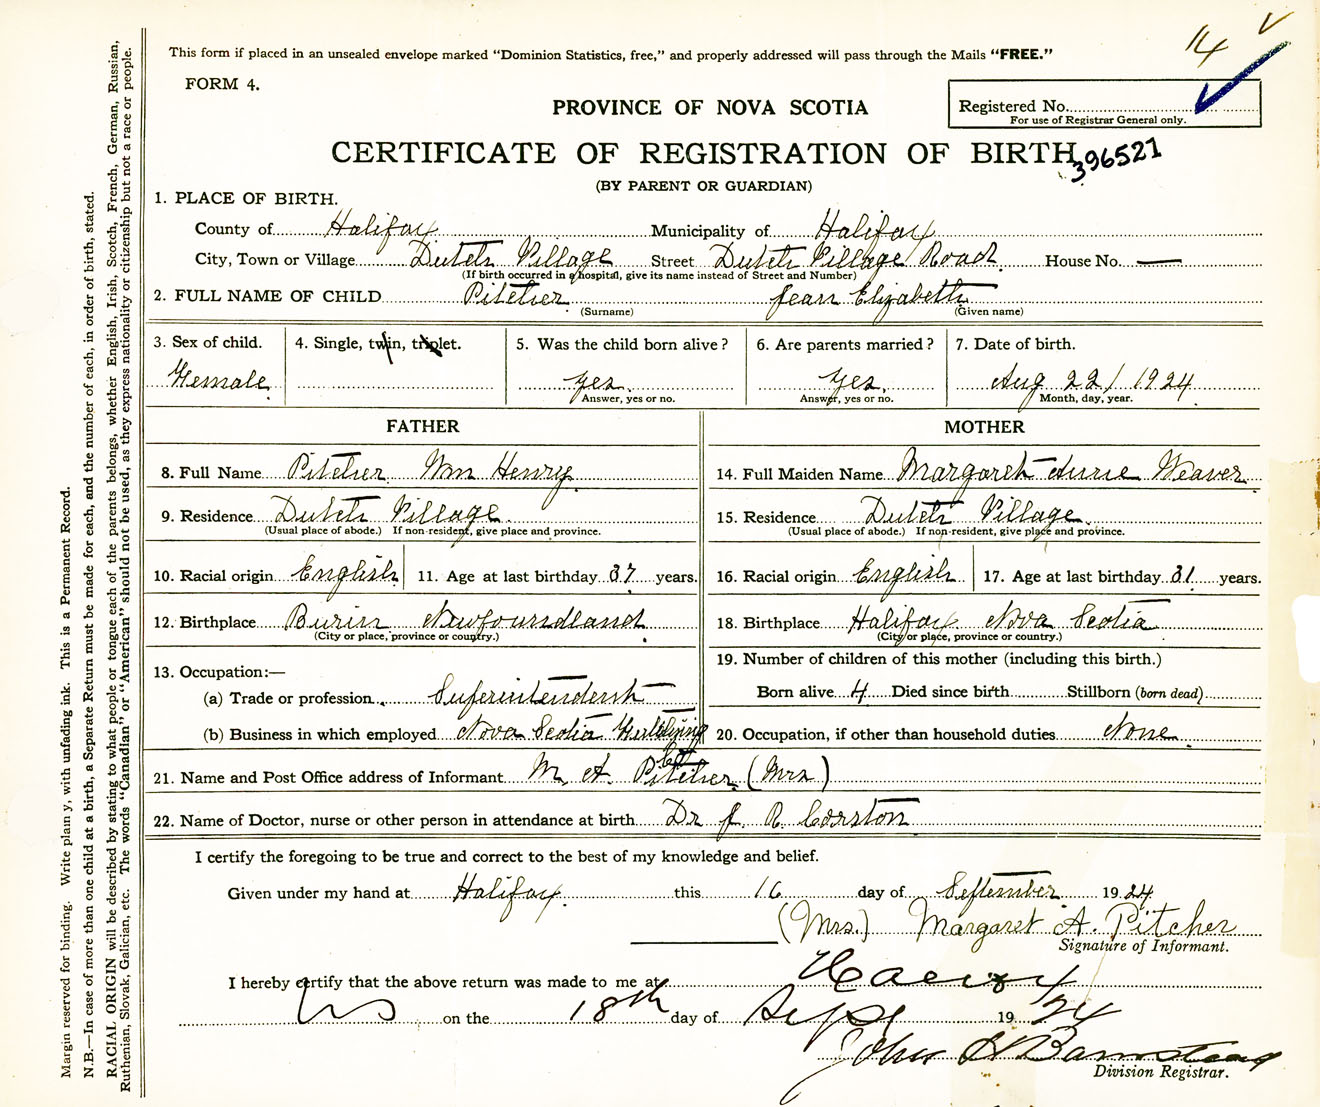 14
This form if placed in an unsealed envelope marked "Dominion Statistics, free," and properly addressed will pass through the Mails "FREE."
FORM 4.
PROVINCE OF NOVA SCOTIA
Registered No.
For use of Registrar General only.
CERTIFICATE OF REGISTRATION OF BIRTH
396521
(BY PARENT OR GUARDIAN)
1. PLACE OF BIRTH.
County of Halifax Municipality of Halifax
City, Town or Village Dutch Village Street Dutch Village Road House No. —
(If birth occurred in a hospital, give its name instead of Street and Number)
2. FULL NAME OF CHILD Pitcher Jean Elizabeth
(Surname) (Given name)
3. Sex of child. 4. Single, twin, triplet. 5. Was the child born alive? 6. Are parents married? 7. Date of birth.
Female yes. yes. Aug 22/1924
Answer, yes or no. Answer, yes or no. Month, day, year.
FATHER MOTHER
8. Full Name Pitcher Wm Henry 14. Full Maiden Name Margaret Annie Weaver
9. Residence Dutch Village. 15. Residence Dutch Village
(Usual place of abode.) If non-resident, give place and province. (Usual place of abode.) If non-resident, give place and province.
10. Racial origin English 11. Age at last birthday 37 years. 16. Racial origin English 17. Age at last birthday 31 years.
12. Birthplace Burin Newfoundland 18. Birthplace Halifax Nova Scotia
(City or place, province or country.) (City or place, province or country.)
13. Occupation:— 19. Number of children of this mother (including this birth.)
(a) Trade or profession Superintendent Born alive 4 Died since birth Stillborn (born dead)
(b) Business in which employed Nova Scotia Co 20. Occupation, if other than household duties None
21. Name and Post Office address of Informant M. A. Pitcher (Mrs)
22. Name of Doctor, nurse or other person in attendance at birth Dr J. R. Corston
I certify the foregoing to be true and correct to the best of my knowledge and belief.
Given under my hand at Halifax this 16 day of September 1924
(Mrs.) Margaret A. Pitcher
Signature of Informant.
I hereby certify that the above return was made to me at Halifax
NS on the 18th day of Sept 1924
John H Barnstead
Division Registrar.
Margin reserved for binding. Write plainly, with unfading ink. This is a Permanent Record.
N.B.—In case of more than one child at a birth, a Separate Return must be made for each, and the number of each, in order of birth, stated.
RACIAL ORIGIN will be described by stating to what people or tongue each of the parents belongs, whether English, Irish, Scotch, French, German, Russian,
Ruthenian, Slovak, Galician, etc. The words "Canadian" or "American" should not be used, as they express nationality or citizenship but not a race or people.